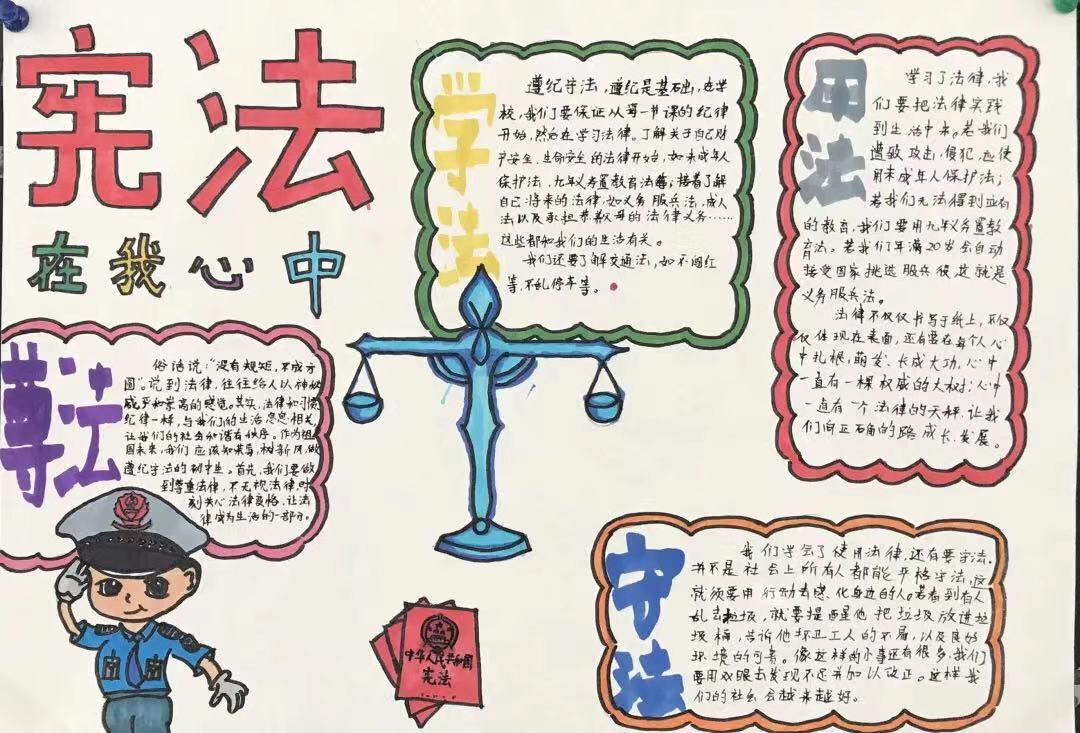 宪法
在我心中
学法
遵纪守法,遵纪是基础,在学
校,我们要保证从每一节课的纪律
开始,然后在学习法律。了解关于自己财
产安全、生命安全的法律开始,如未成年人
保护法、九年义务置教育法等;接着了解
自己将来的法律,如义务服兵法,成人
法以及承担恭敬父母的法律义务……
这些都和我们的生活有关。
我们还要了解交通法,如不闯红
等、不乱停车等。
用法
学习了法律,我
们要把法律实践
到生活中来。若我们
遭致攻击,侵犯,应使
用未成年人保护法;
若我们无法得到应有
的教育,我们要用九年义务置教
育法。若我们年满20岁会自动
接受国家挑选服兵役,这就是
义务服兵法。
法律不仅仅书写于纸上,不仅
仅体现在表面,还有要在每个人心
中扎根,萌发、长成大功,心中
一直有一棵权威的大树;心中
一直有一个法律的天秤,让我
们向正确的路成长、发展。
尊法
俗话说:“没有规矩,不成方
圆”。说到法律,往往给人以神秘
威严和崇高的感觉。其实,法律和习惯
纪律一样,与我们的生活息息相关,
让我们的社会和谐有秩序。作为祖
国未来,我们应该知荣辱,树新风,做
遵纪守法的初中生。首先,我们要做
到尊重法律,不无视法律,时
刻关心法律变格,让法
律成为生活的一部分。
守法
我们学会了使用法律,还有要守法。
并不是社会上所有人都能严格守法,这
就须要用行动去感化身边的人。若看到有人
乱去垃圾,就要提醒他把垃圾放进垃
圾桶,告诉他环卫工人的不易,以及良好
环境的可贵。像这样的小事还有很多,我们
要用双眼去发现不足并加以改正。这样我
们的社会会越来越好。
中华人民共和国
宪法